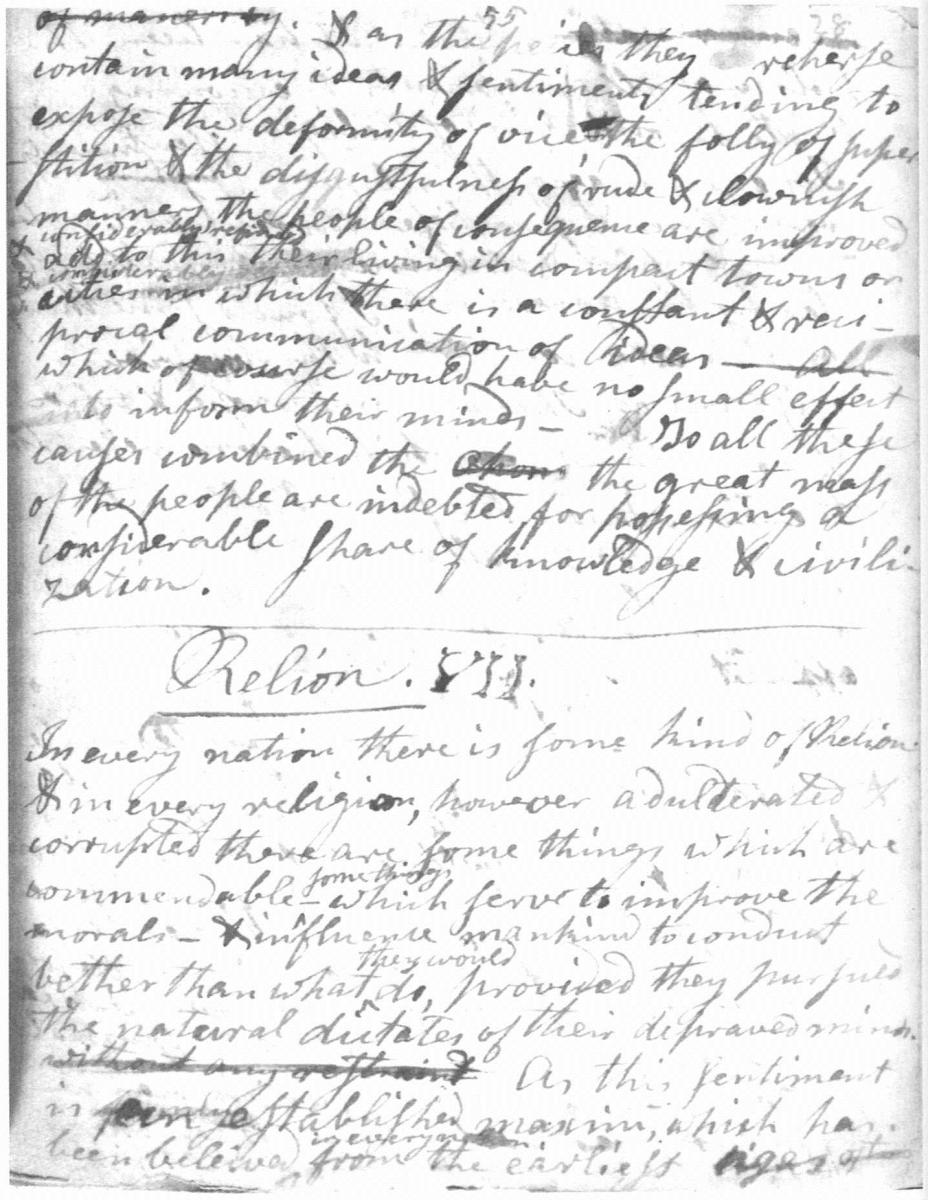 of manerrsy. 55 28
& as the pe ils they reherse
contain many ideas & sentiments tending to
expose the deformity of vice the folly of super
stition & the disgustfulness of rude & clownish
manners the people of consequence are improved
& considerably refined
add to this their living in compact towns or
& considerable
cities in which there is a constant & reci-
procal communication of ideas — All
which of course would have no small effect
to inform their minds — To all these
causes combined the the great mass
of the people are indebted for possessing a
considerable share of knowledge & civili-
zation.
Relion. VII.
In every nation there is some kind of Relion
& in every religion, however adulterated &
corrupted there are some things which are
some things
commendable – which serve to improve the
morals – & influence mankind to conduct
they would
bether than what ^ do, provided they pursued
the natural dictates of their depraved minds.
without any restraint As this sentiment
is an established maxim, which has
in every nation
been beleived from the earliest ages of